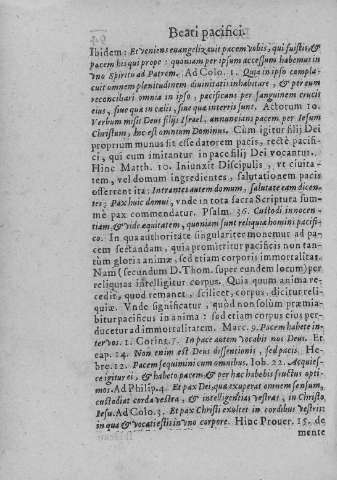 Beati pacifici.
Ibidem: Et veniens euangelizauit pacem vobis, qui fuistis, &
pacem his qui prope: quoniam per ipsum accessum habemus in
vno Spiritu ad Patrem. Ad Colo. 1. Quia in ipso compla-
cuit omnem plenitudinem diuinitati inhabitare, & per eum
reconciliari omnia in ipso, pacificans per sanguinem crucis
eius, siue quæ in cælis, siue quæ in terris sunt. Actorum 10.
Verbum misit Deus filijs Israel, annuncians pacem per Iesum
Christum, hoc est omnium Dominus. Cum igitur filij Dei
proprium munus sit esse datorem pacis, rectè pacifi-
ci, qui cum imitantur in pace filij Dei vocantur.
Hinc Matth. 10. Iniunxit Discipulis, vt ciuita-
tem, vel domum ingredientes, salutationem pacis
offerent ita: Intrantes autem domum, salutate eam dicen-
tes; Pax huic domui, vnde in tota sacra Scriptura sum-
mè pax commendatur. Psalm. 36. Custodi innocen-
tiam, & vide æquitatem, quoniam sunt reliquiæ homini pacifi-
co. In qua authoritate singulariter monemur ad pa-
cem sectandam, quia promittitur pacificis non tan-
tùm gloria animæ, sed etiam corporis immortalitas.
Nam (secundum D. Thom. super eundem locum) per
reliquias intelligitur corpus. Quia quum anima re-
cedit, quod remanet, scilicet, corpus, dicitur reli-
quiæ. Vnde significatur, quòd non solùm præmia-
bitur pacificus in anima: sed etiam corpus eius per-
ducetur ad immortalitatem. Marc. 9. Pacem habete in-
ter vos. 1. Corint. 7. In pace autem vocabit nos Deus. Et
cap. 14. Non enim est Deus dissentionis, sed pacis. He-
bre. 12. Pacem sequimini cum omnibus. Iob. 22. Acquies-
ce igitur ei, & habeto pacem, & per hæc habebis fructus opti-
mos. Ad Philip. 4. Et pax Dei, quæ exuperat omnem sensum,
custodiat corda vestra, & intelligentias vestras, in Christo
Iesu. Ad Colo. 3. Et pax Christi exultet in cordibus vestris
in qua & vocati estis in vno corpore. Hinc Prouer. 15. de
mente